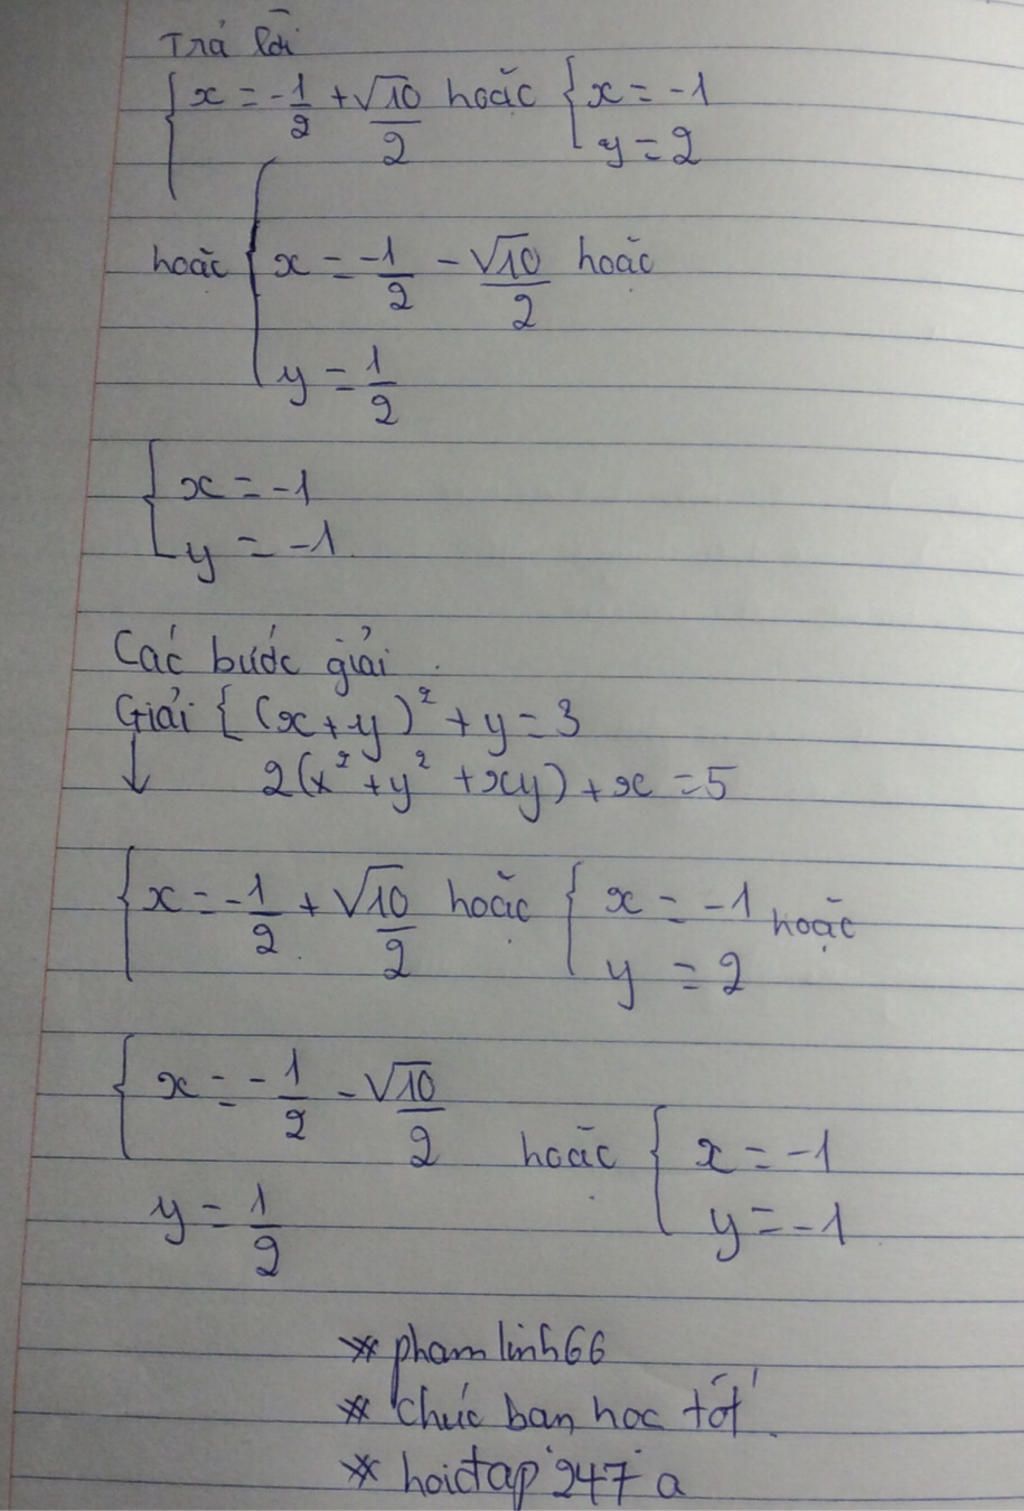 Trả lời
{ x = -1/2 + √10/2 hoặc { x = -1
y = 2
hoặc { x = -1/2 - √10/2 hoặc
y = 1/2
{ x = -1
y = -1
Các bước giải
Giải { (x+y)² + y = 3
↓ 2(x² + y² + xy) + x = 5
{ x = -1/2 + √10/2 hoặc { x = -1 hoặc
y = 2
{ x = -1/2 - √10/2
hoặc { x = -1
y = 1/2 y = -1
* pham linh66
* chúc bạn học tốt
* hoidap 247 a